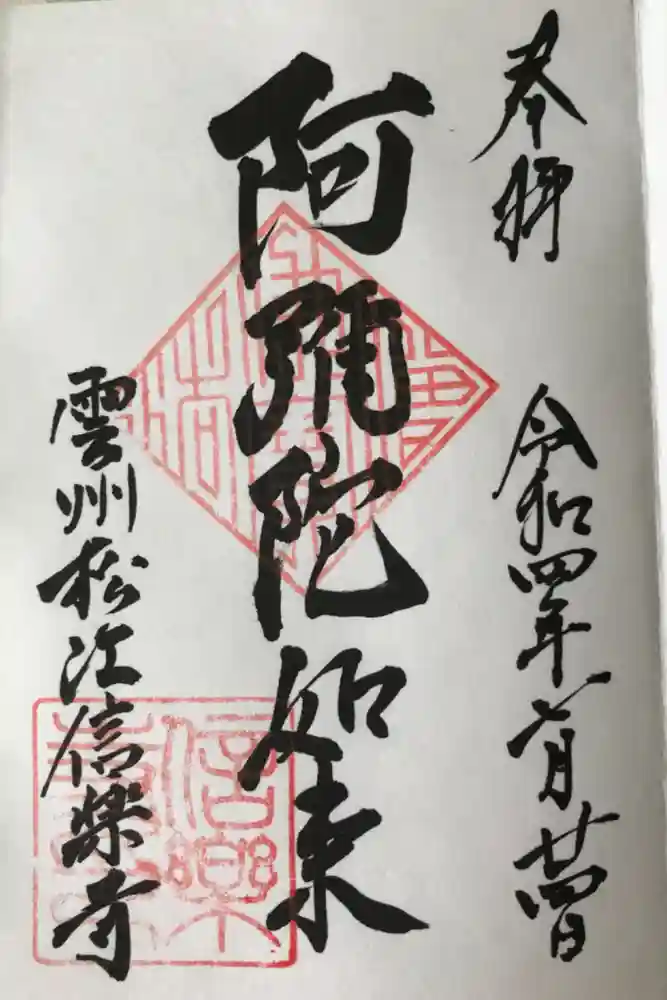 奉拝
令和四年六月廿四日
阿彌陀如来
雲州松江信樂寺